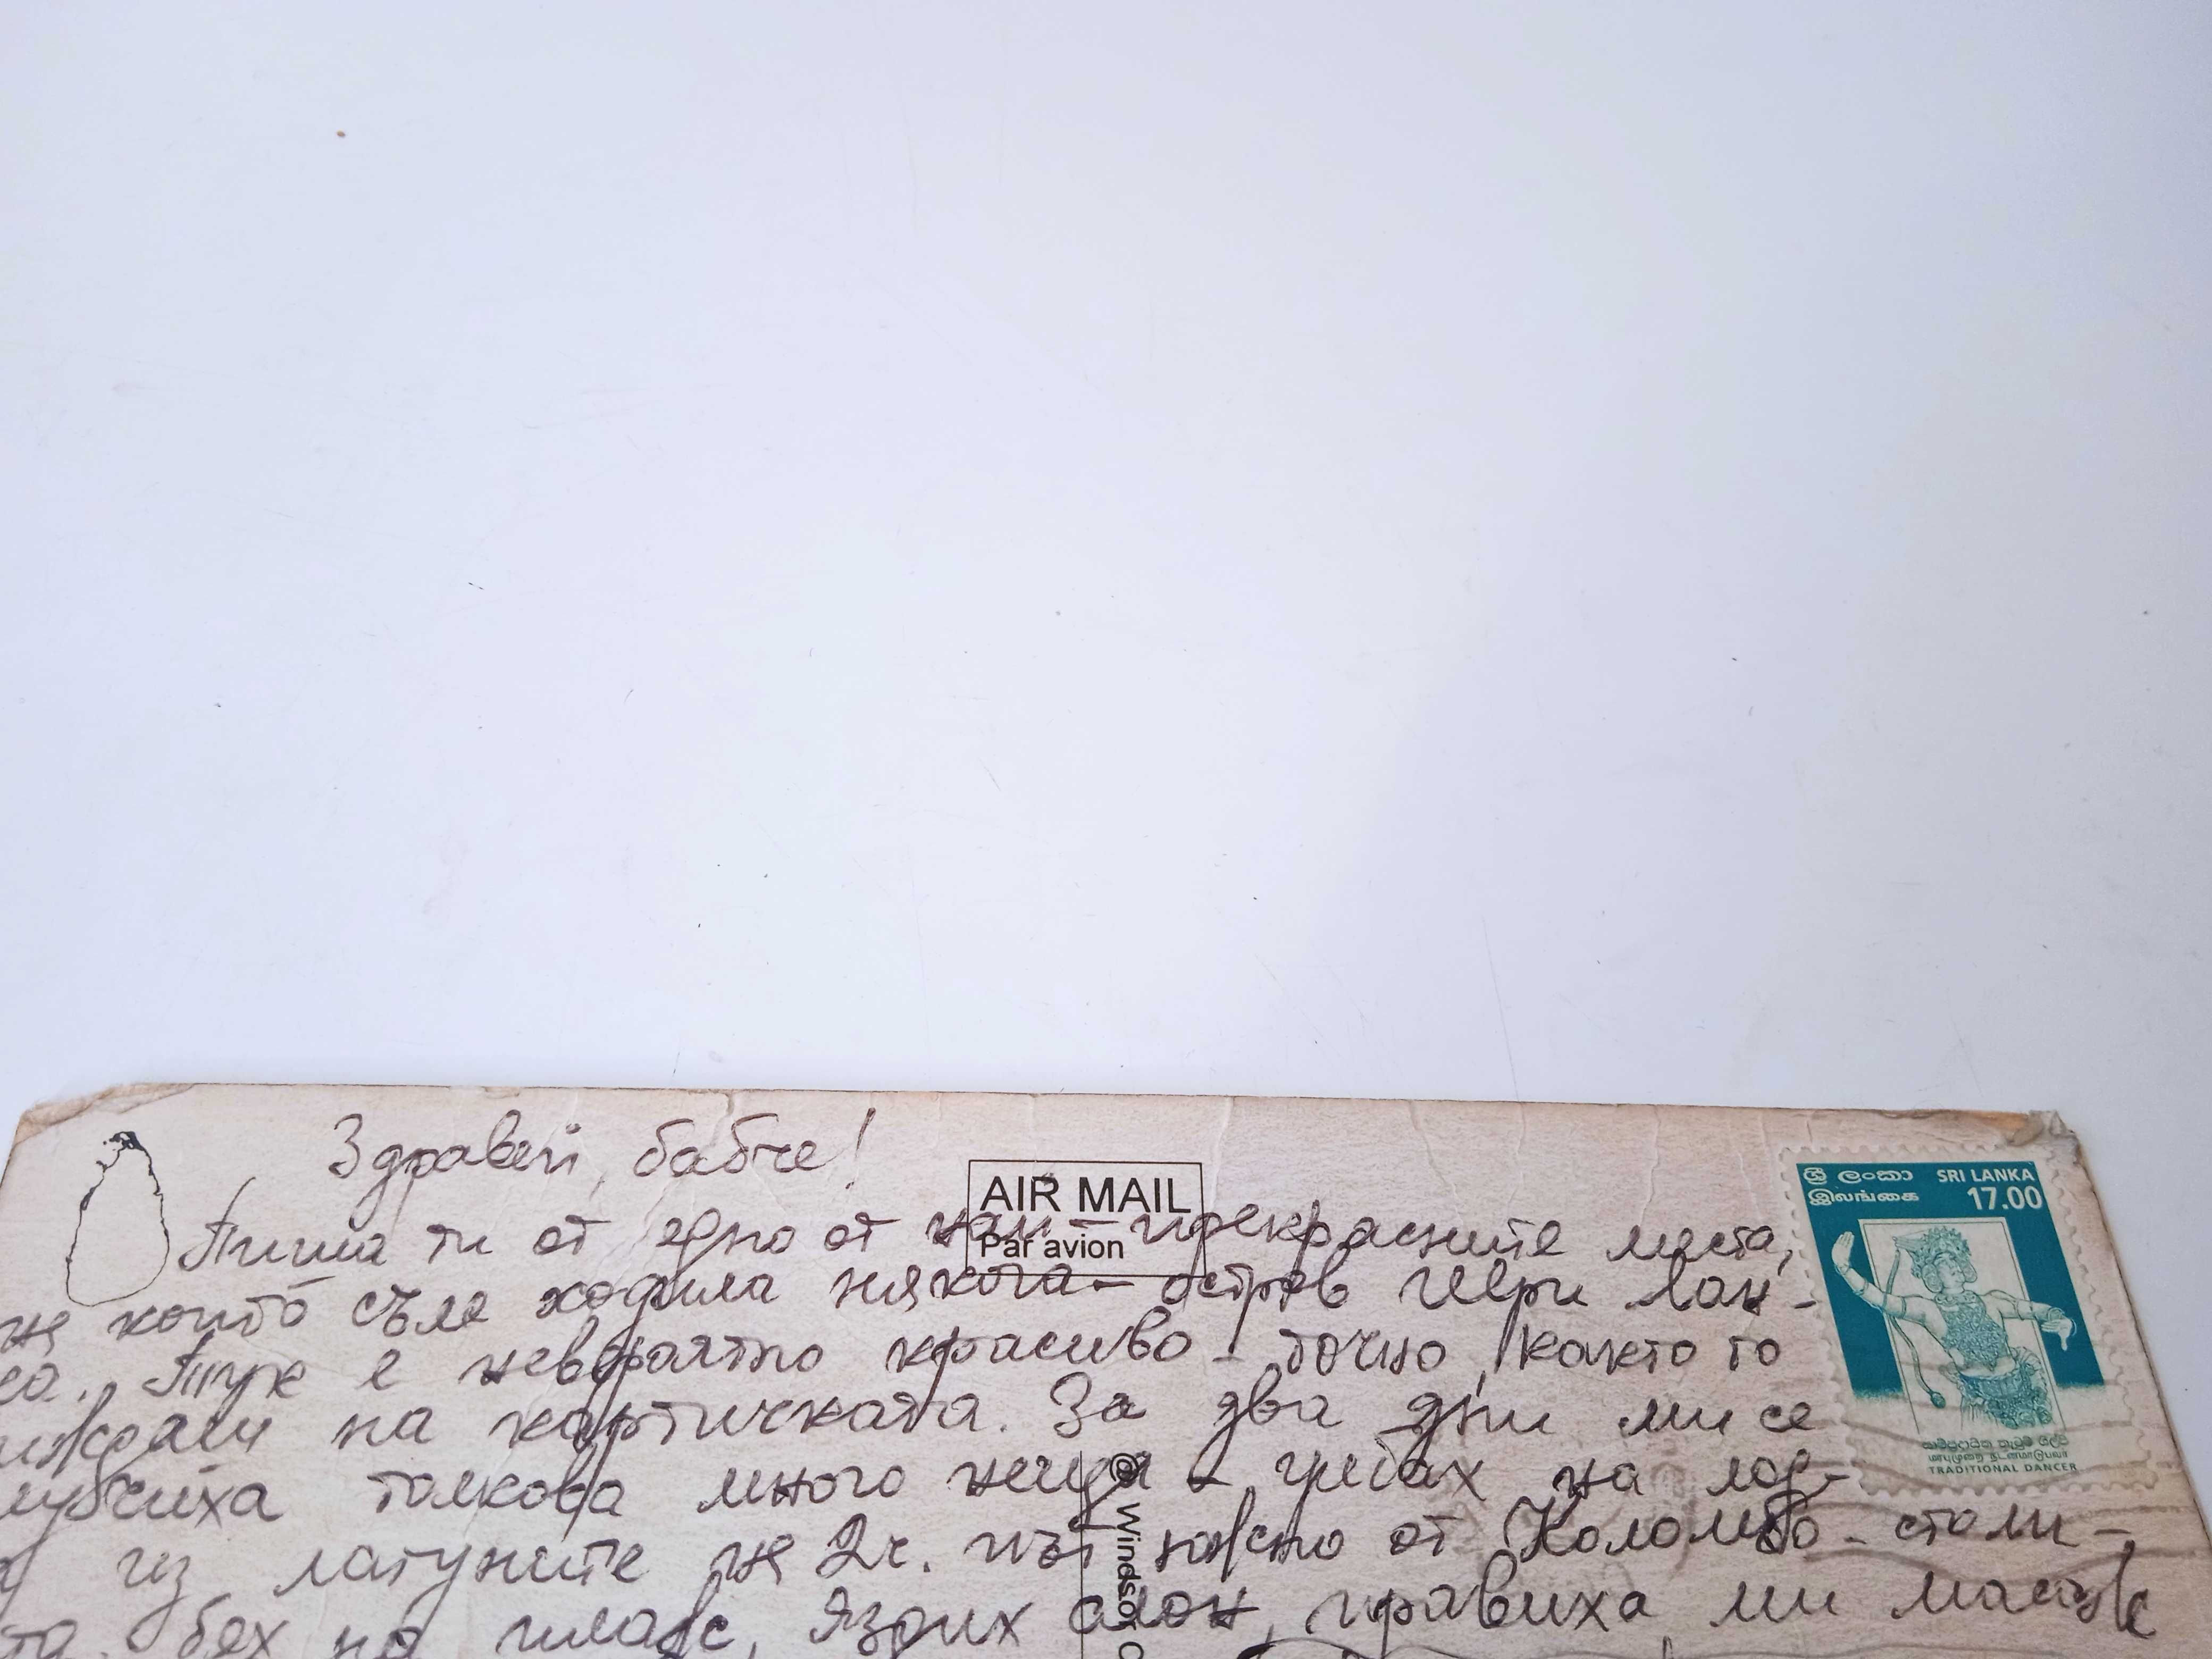 Здравей, бабче!
AIR MAIL
Par avion
ශ්‍රී ලංකා SRI LANKA
இலங்கை 17.00
Пиша ти от едно от най-прекрасните места,
на които съм ходила някога - остров Шри Лан-
ка. Тук е невероятно красиво - точно, както го
виждаш на картичката. За два дни ми се
случиха толкова много неща - гребах на лод-
ка из лагуните на 2ч. път южно от Коломбо - столи-
цата. Бях на плаж, яздих слон, правиха ми масаж
TRADITIONAL DANCER
© Windsor